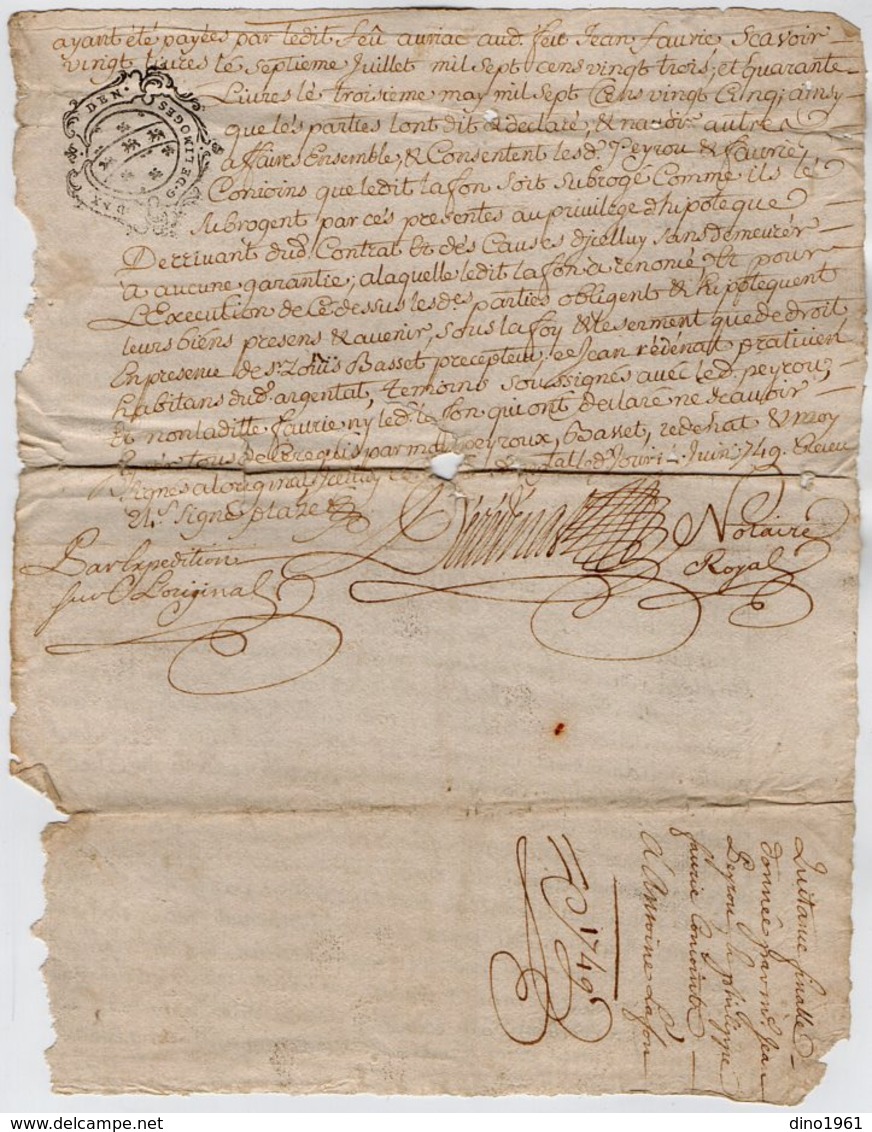 ayant été payées par ledit feû auriac aud. feu Jean faurie Scavoir
vingt livres le Septieme Juillet mil Sept cens vingt trois, et quarante
Livres lé troisieme may mil Sept Cens vingt Cinq, ainsy
que lés parties l'ont dit & declaré, & navoir autres
affaires Ensemble, & Consentent lesd. Peyrou & faurie
Conjoins que ledit lafon soit subrogé Comme ils le
subrogent par cés presentes au privilége d'hipoteque
Derrivant dud. Contrat Et dés Causes d'jcelluy sans demeurér
a aucune garantie, a laquelle ledit lafon à renoncé, Et pour
L'Execution de Ce dessus lesdes. parties obligent & hipotequent
leurs biéns presens & avenir, sous la foy & le serment que de droit
En presence de sr. Loüis Basset precepteur, et Jean rédénat praticien
habitans dud. argentat, temoins soussignés avec led. peyrou,
Et non laditte faurie ny led. lafon qui ont declaré ne scavoir
par peyroux, Basset, redenat & moy
Signés a l'original Juin 1749. Receu
signe plaze
Par Expedition
sur L'original
Rédénat
Notaire
Royal
DEN. SEGOMILED.G
Quitance finalle
donnée par mr. Jean
Peyrou & philippe
faurie Conjoints
a Antoine Lafon
1749
dino1961